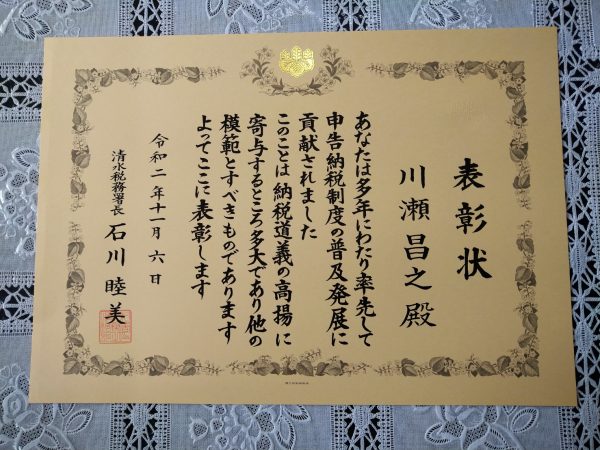 表彰状
川瀬昌之殿
あなたは多年にわたり率先して
申告納税制度の普及発展に
貢献されました
このことは納税道義の高揚に
寄与するところ多大であり他の
模範とすべきものであります
よってここに表彰します
令和二年十一月六日
清水税務署長 石川睦美